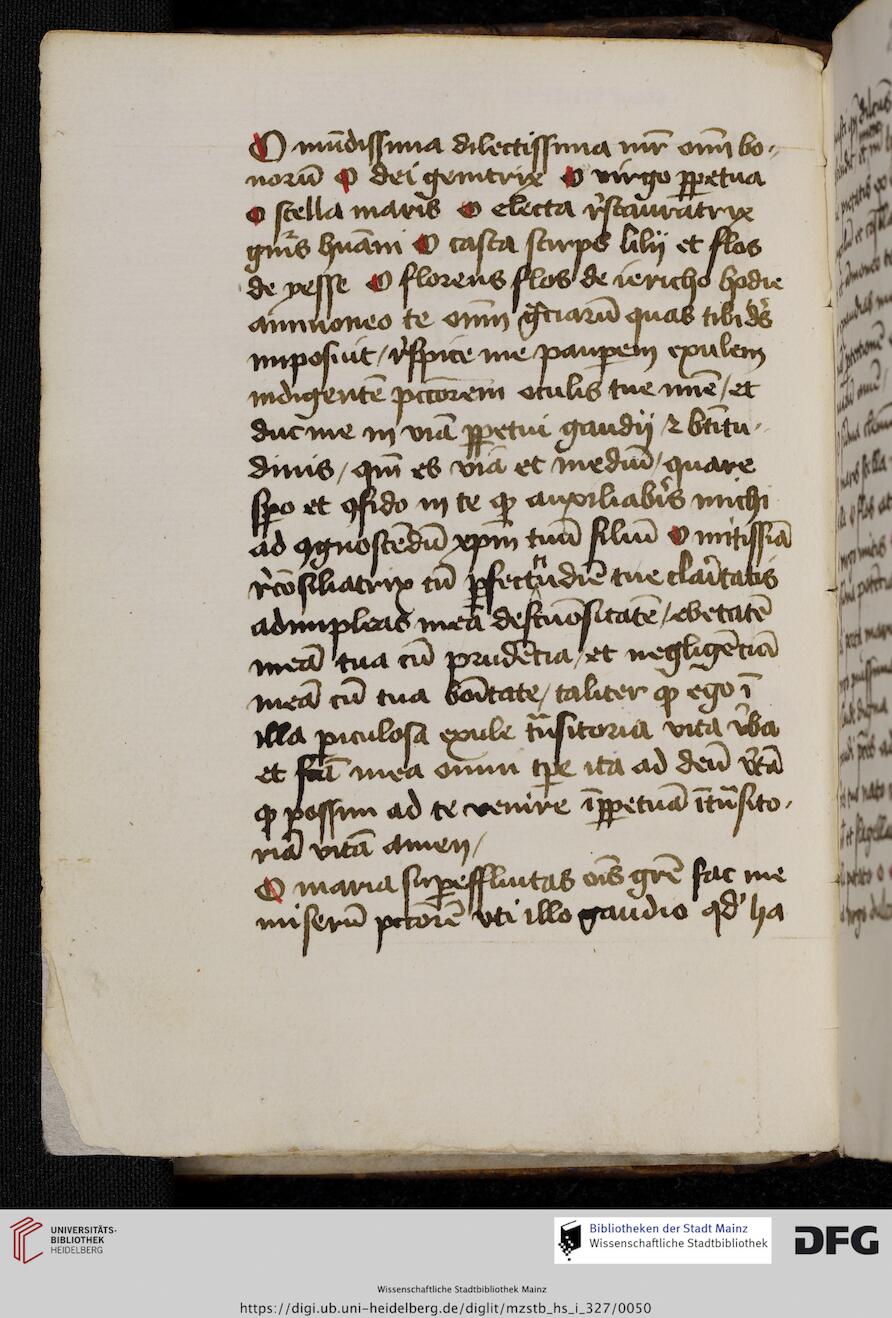 O mūdissima dilectissima mr̄ oīm bo-
norū O dei genitrix O virgo ꝑpetua
O stella maris O electa r̓stauratrix
gn̄is hūani O casta stirps lilij et flos
de yesse O florens flos de iericho hodie
ammoneo te oīm gr̄ciarū quas tibi ds̄
imposuit / r̓spice me pauꝑem exulem
indigentē pctōrem oculis tue mīe / et
duc me in viā ꝑpetui gaudij / ⁊ btītu-
dinis / qm̄ es via et mediū / quare
spo et ꝯfido in te ꝙ auxiliabis michi
ad ꝯgnoscēdū xpm̄ tuū filiū O mitissiā
r̓cōsiliatrix cū ꝑfectudīe tue claritatis
adimpleas meā defcuositatē / ebetatē
meā tua cū prudētia / et negligētiā
meā cū tua boītate / taliter ꝙ ego ī
illa piculosa exule trāsitoria vita v̓ba
et fcā mea omni tꝑe ita ad deū v̓tā
ꝙ possim ad te venire īꝑpetuā ītrāsito-
riā vitā amen /
O maria suꝑeffluitas oīs grē fac me
miserū pctōrē vti illo gaudio qd̓ ha
UNIVERSITÄTS-
BIBLIOTHEK
HEIDELBERG
Bibliotheken der Stadt Mainz
Wissenschaftliche Stadtbibliothek
DFG
Wissenschaftliche Stadtbibliothek Mainz
https://digi.ub.uni-heidelberg.de/diglit/mzstb_hs_i_327/0050